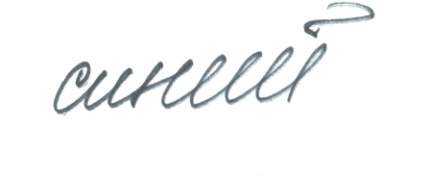 синий